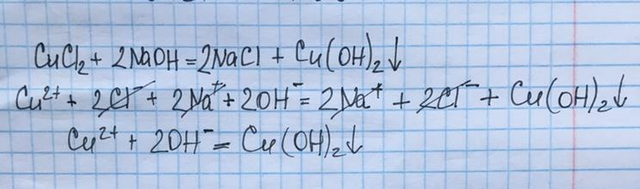 CuCl₂ + 2NaOH = 2NaCl + Cu(OH)₂↓
Cu²⁺ + 2Cl⁻ + 2Na⁺ + 2OH⁻ = 2Na⁺ + 2Cl⁻ + Cu(OH)₂↓
Cu²⁺ + 2OH⁻ = Cu(OH)₂↓